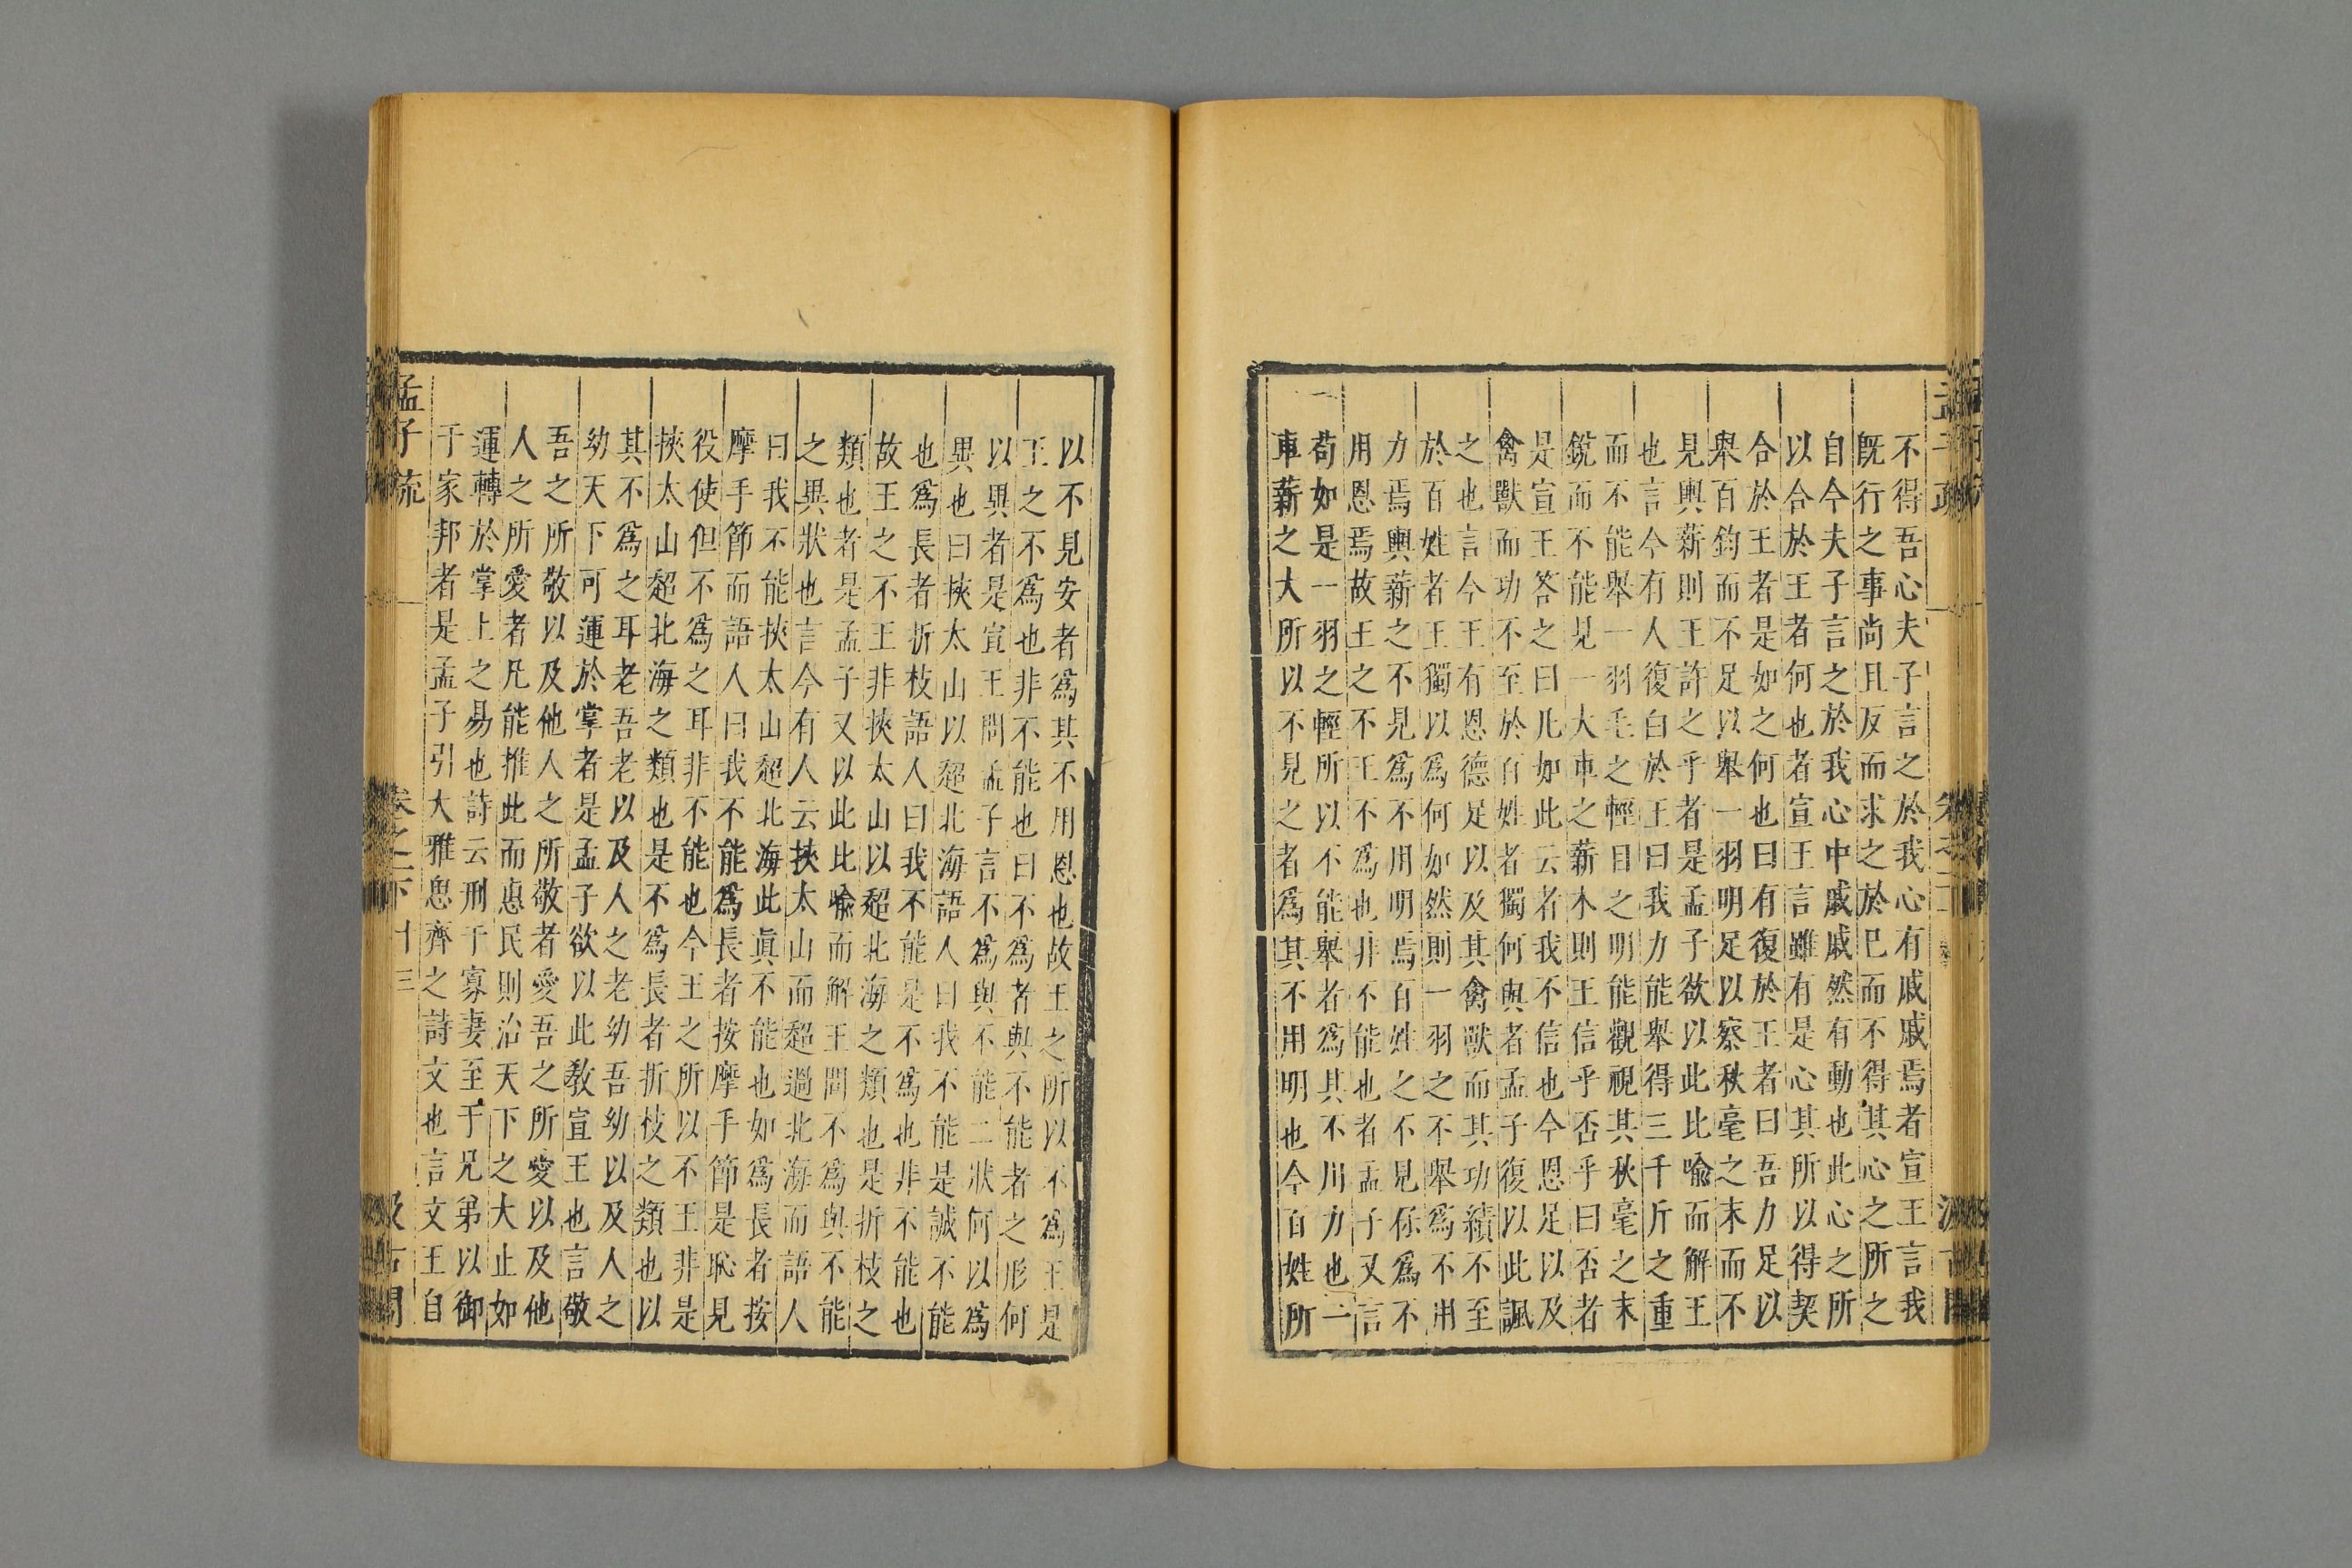 不得吾心夫子言之於我心有戚戚焉者宣王言我
既行之事尚且反而求之於已而不得其心之所之
自今夫子言之於我心中戚戚然有動也此心之所
以合於王者何也者宣王言雖有是心其所以得契
合於王者是如之何也曰有復於王者曰吾力足以
舉百鈞而不足以舉一羽明足以察秋毫之末而不
見輿薪則王許之乎者是孟子欲以此比喻而解王
也言今有人復白於王曰我力能舉得三千斤之重
而不能舉一羽毛之輕目之明能觀視其秋毫之末
銳而不能見一大車之薪木則王信乎否乎曰否者
是宣王答之曰凡如此云者我不信也今恩足以及
禽獸而功不至於百姓者獨何與者孟子復以此諷
之也言今王有恩德足以及其禽獸而其功績不至
於百姓者王獨以爲何如然則一羽之不舉爲不用
力焉輿薪之不見爲不用明焉百姓之不見保爲不
用恩焉故王之不王不爲也非不能也者孟子又言
苟如是一羽之輕所以不能舉者爲其不用力也一
車薪之大所以不見之者爲其不用明也今百姓所
以不見安者爲其不用恩也故王之所以不爲王是
王之不爲也非不能也曰不爲者與不能者之形何
以異者是宣王問孟子言不爲與不能二狀何以爲
異也曰挾太山以超北海語人曰我不能是誠不能
也爲長者折枝語人曰我不能是不爲也非不能也
故王之不王非挾太山以超北海之類也是折枝之
類也者是孟子又以此比喻而解王問不爲與不能
之異狀也言今有人云挾太山而超過北海而語人
曰我不能挾太山超北海此眞不能也如爲長者按
摩手節而語人曰我不能爲長者按摩手節是恥見
役使但不爲之耳非不能也今王之所以不王非是
挾太山超北海之類也是不爲長者折枝之類也以
其不爲之耳老吾老以及人之老幼吾幼以及人之
幼天下可運於掌者是孟子欲以此教宣王也言敬
吾之所敬以及他人之所敬者愛吾之所愛以及他
人之所愛者凡能推此而惠民則治天下之大止如
運轉於掌上之易也詩云刑于寡妻至于兄弟以御
于家邦者是孟子引大雅思齊之詩文也言文王自
孟子疏
卷之一下
十三